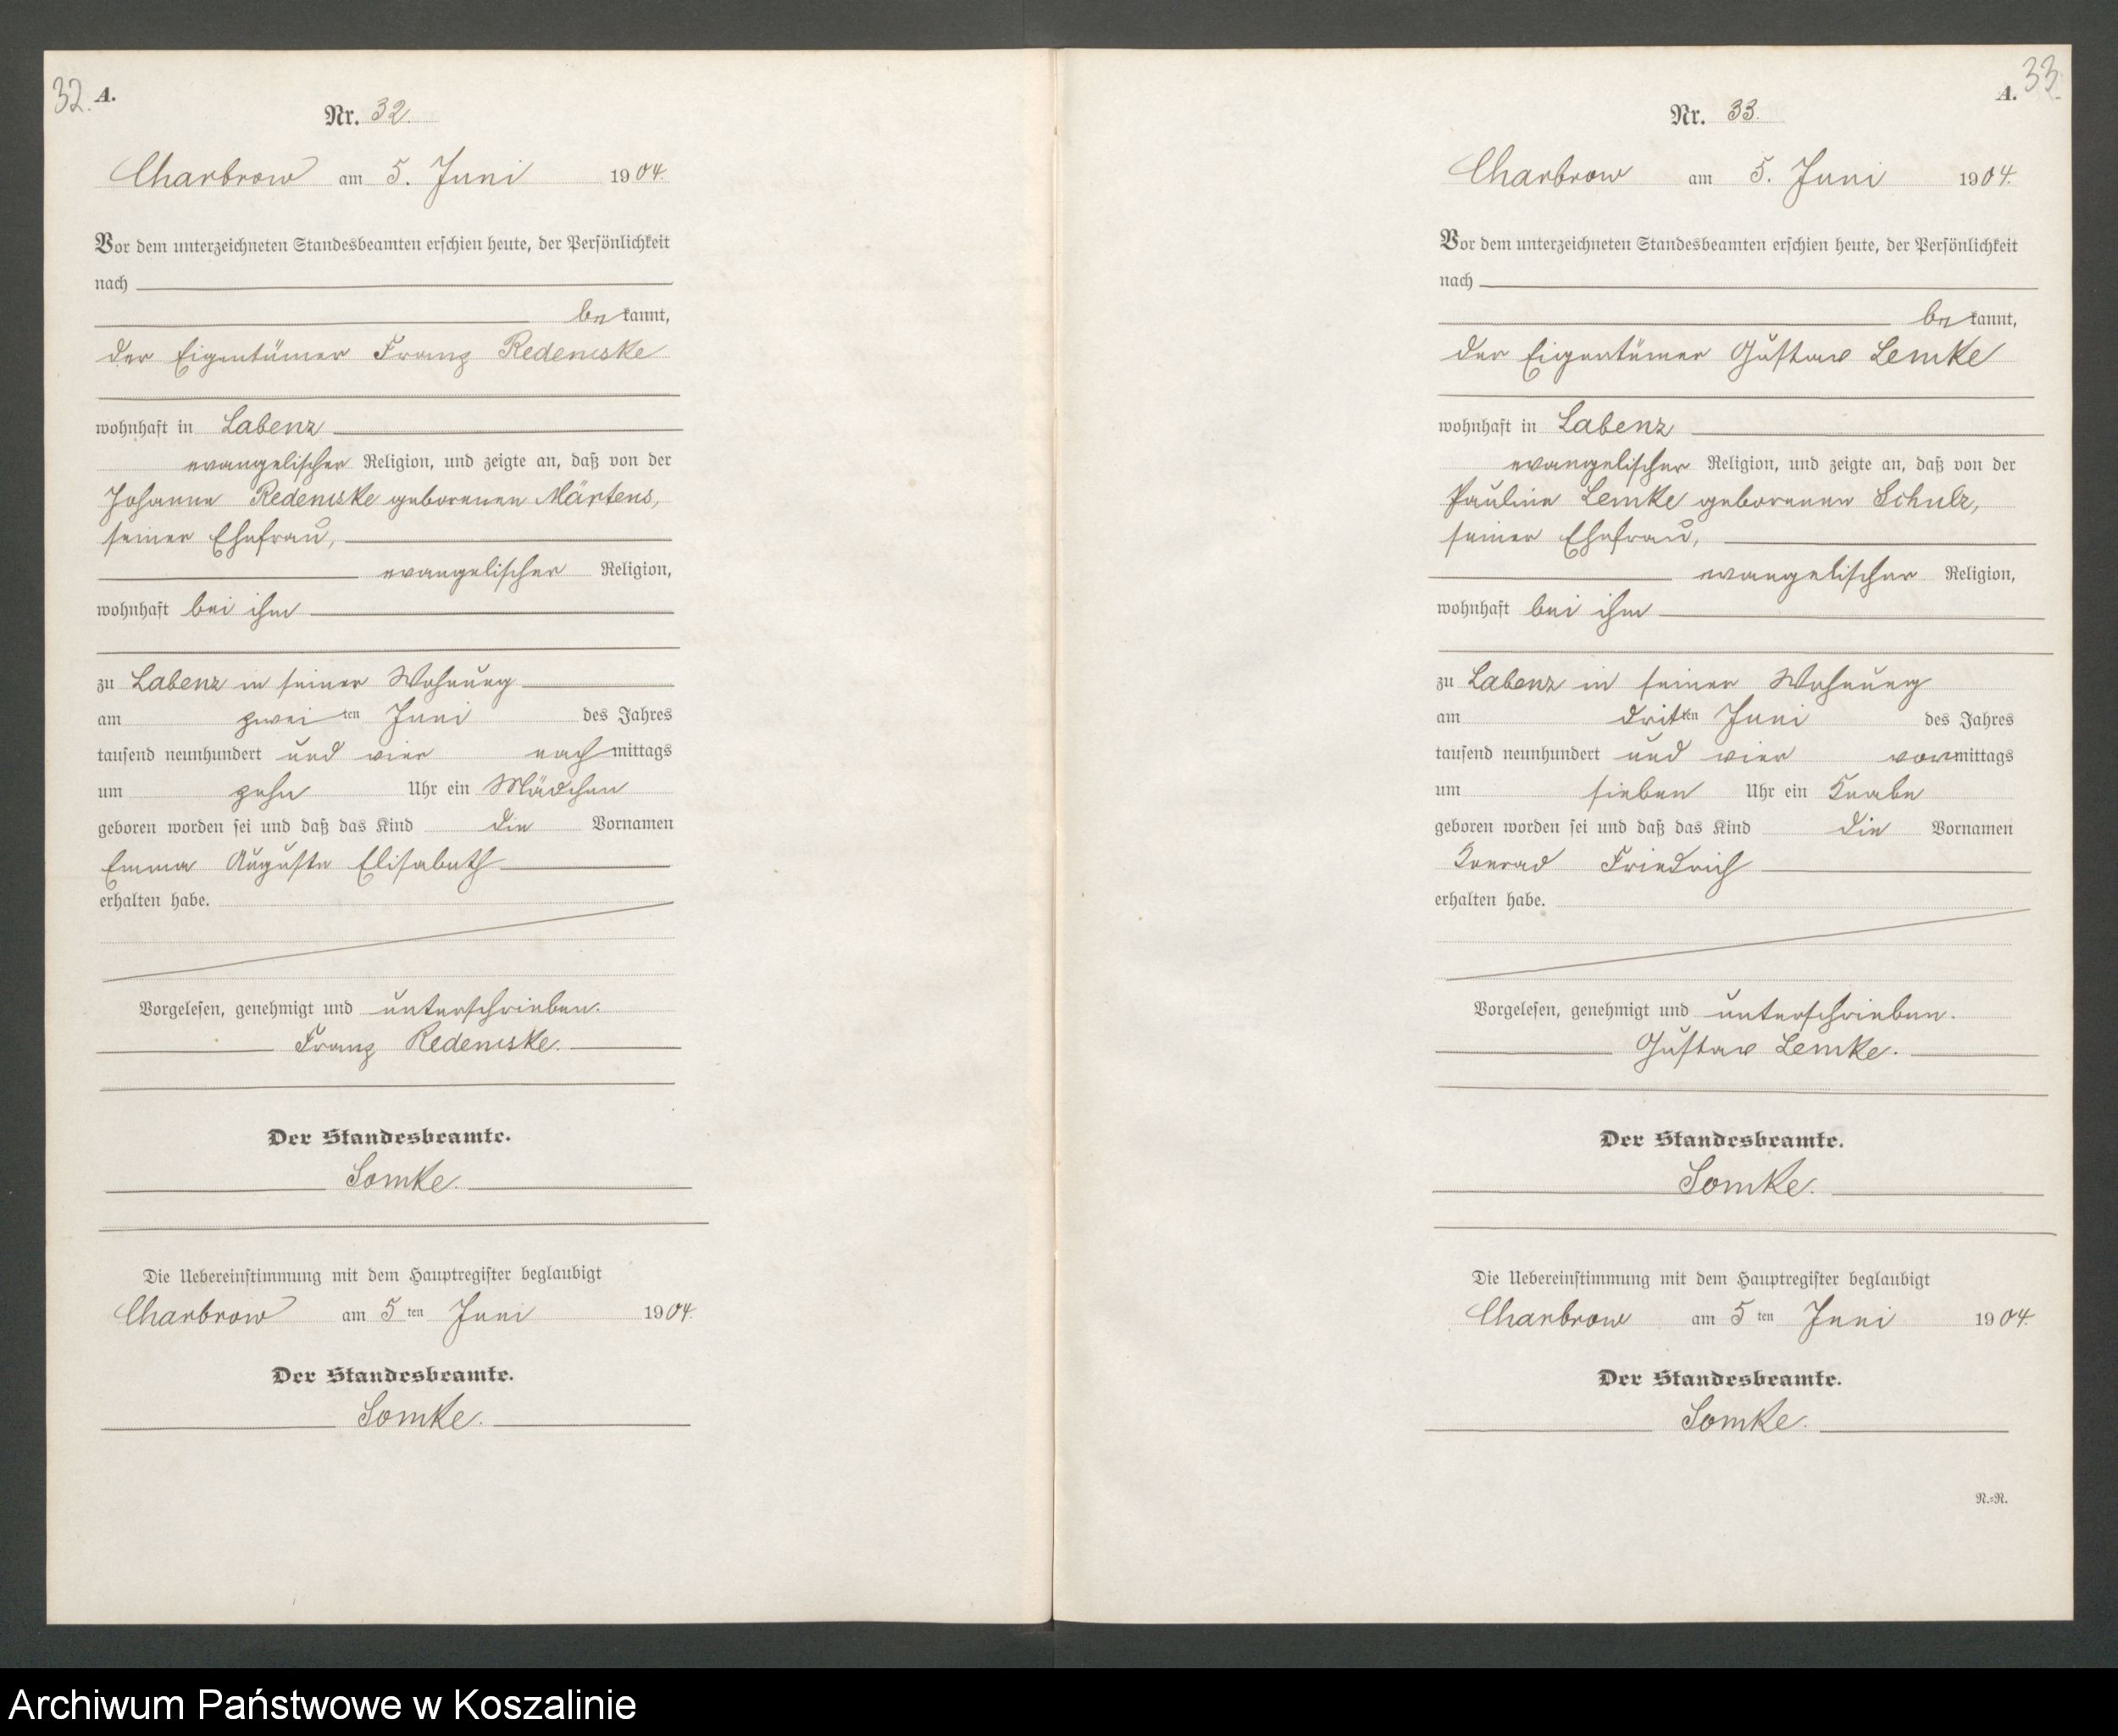 32. A.
Nr. 32.
Charbrow am 5. Juni 1904.
Vor dem unterzeichneten Standesbeamten erschien heute, der Persönlichkeit
nach
bekannt,
der Eigentümer Franz Redemske
wohnhaft in Labenz
evangelischer Religion, und zeigte an, daß von der
Johanne Redemske geborenen Märtens,
seiner Ehefrau,
evangelischer Religion,
wohnhaft bei ihm
zu Labenz in seiner Wohnung
am zweiten Juni des Jahres
tausend neunhundert und vier nachmittags
um zehn Uhr ein Mädchen
geboren worden sei und daß das Kind die Vornamen
Emma Auguste Elisabeth
erhalten habe.
Vorgelesen, genehmigt und unterschrieben.
Franz Redemske.
Der Standesbeamte.
Lomke.
Die Uebereinstimmung mit dem Hauptregister beglaubigt
Charbrow am 5ten Juni 1904.
Der Standesbeamte.
Lomke.
A. 33.
Nr. 33.
Charbrow am 5. Juni 1904.
Vor dem unterzeichneten Standesbeamten erschien heute, der Persönlichkeit
nach
bekannt,
der Eigentümer Gustav Lemke
wohnhaft in Labenz
evangelischer Religion, und zeigte an, daß von der
Pauline Lemke geborenen Schulz,
seiner Ehefrau,
evangelischer Religion,
wohnhaft bei ihm
zu Labenz in seiner Wohnung
am dritten Juni des Jahres
tausend neunhundert und vier vormittags
um sieben Uhr ein Knabe
geboren worden sei und daß das Kind die Vornamen
Konrad Friedrich
erhalten habe.
Vorgelesen, genehmigt und unterschrieben.
Gustav Lemke.
Der Standesbeamte.
Lomke.
Die Uebereinstimmung mit dem Hauptregister beglaubigt
Charbrow am 5ten Juni 1904.
Der Standesbeamte.
Lomke.
N.=R.
Archiwum Państwowe w Koszalinie